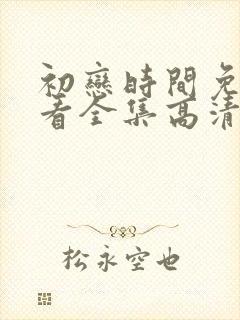 初戀時間免
看全集高清
松永空也